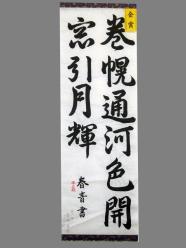 金賞
巻幌通河色開
窓引月輝
書